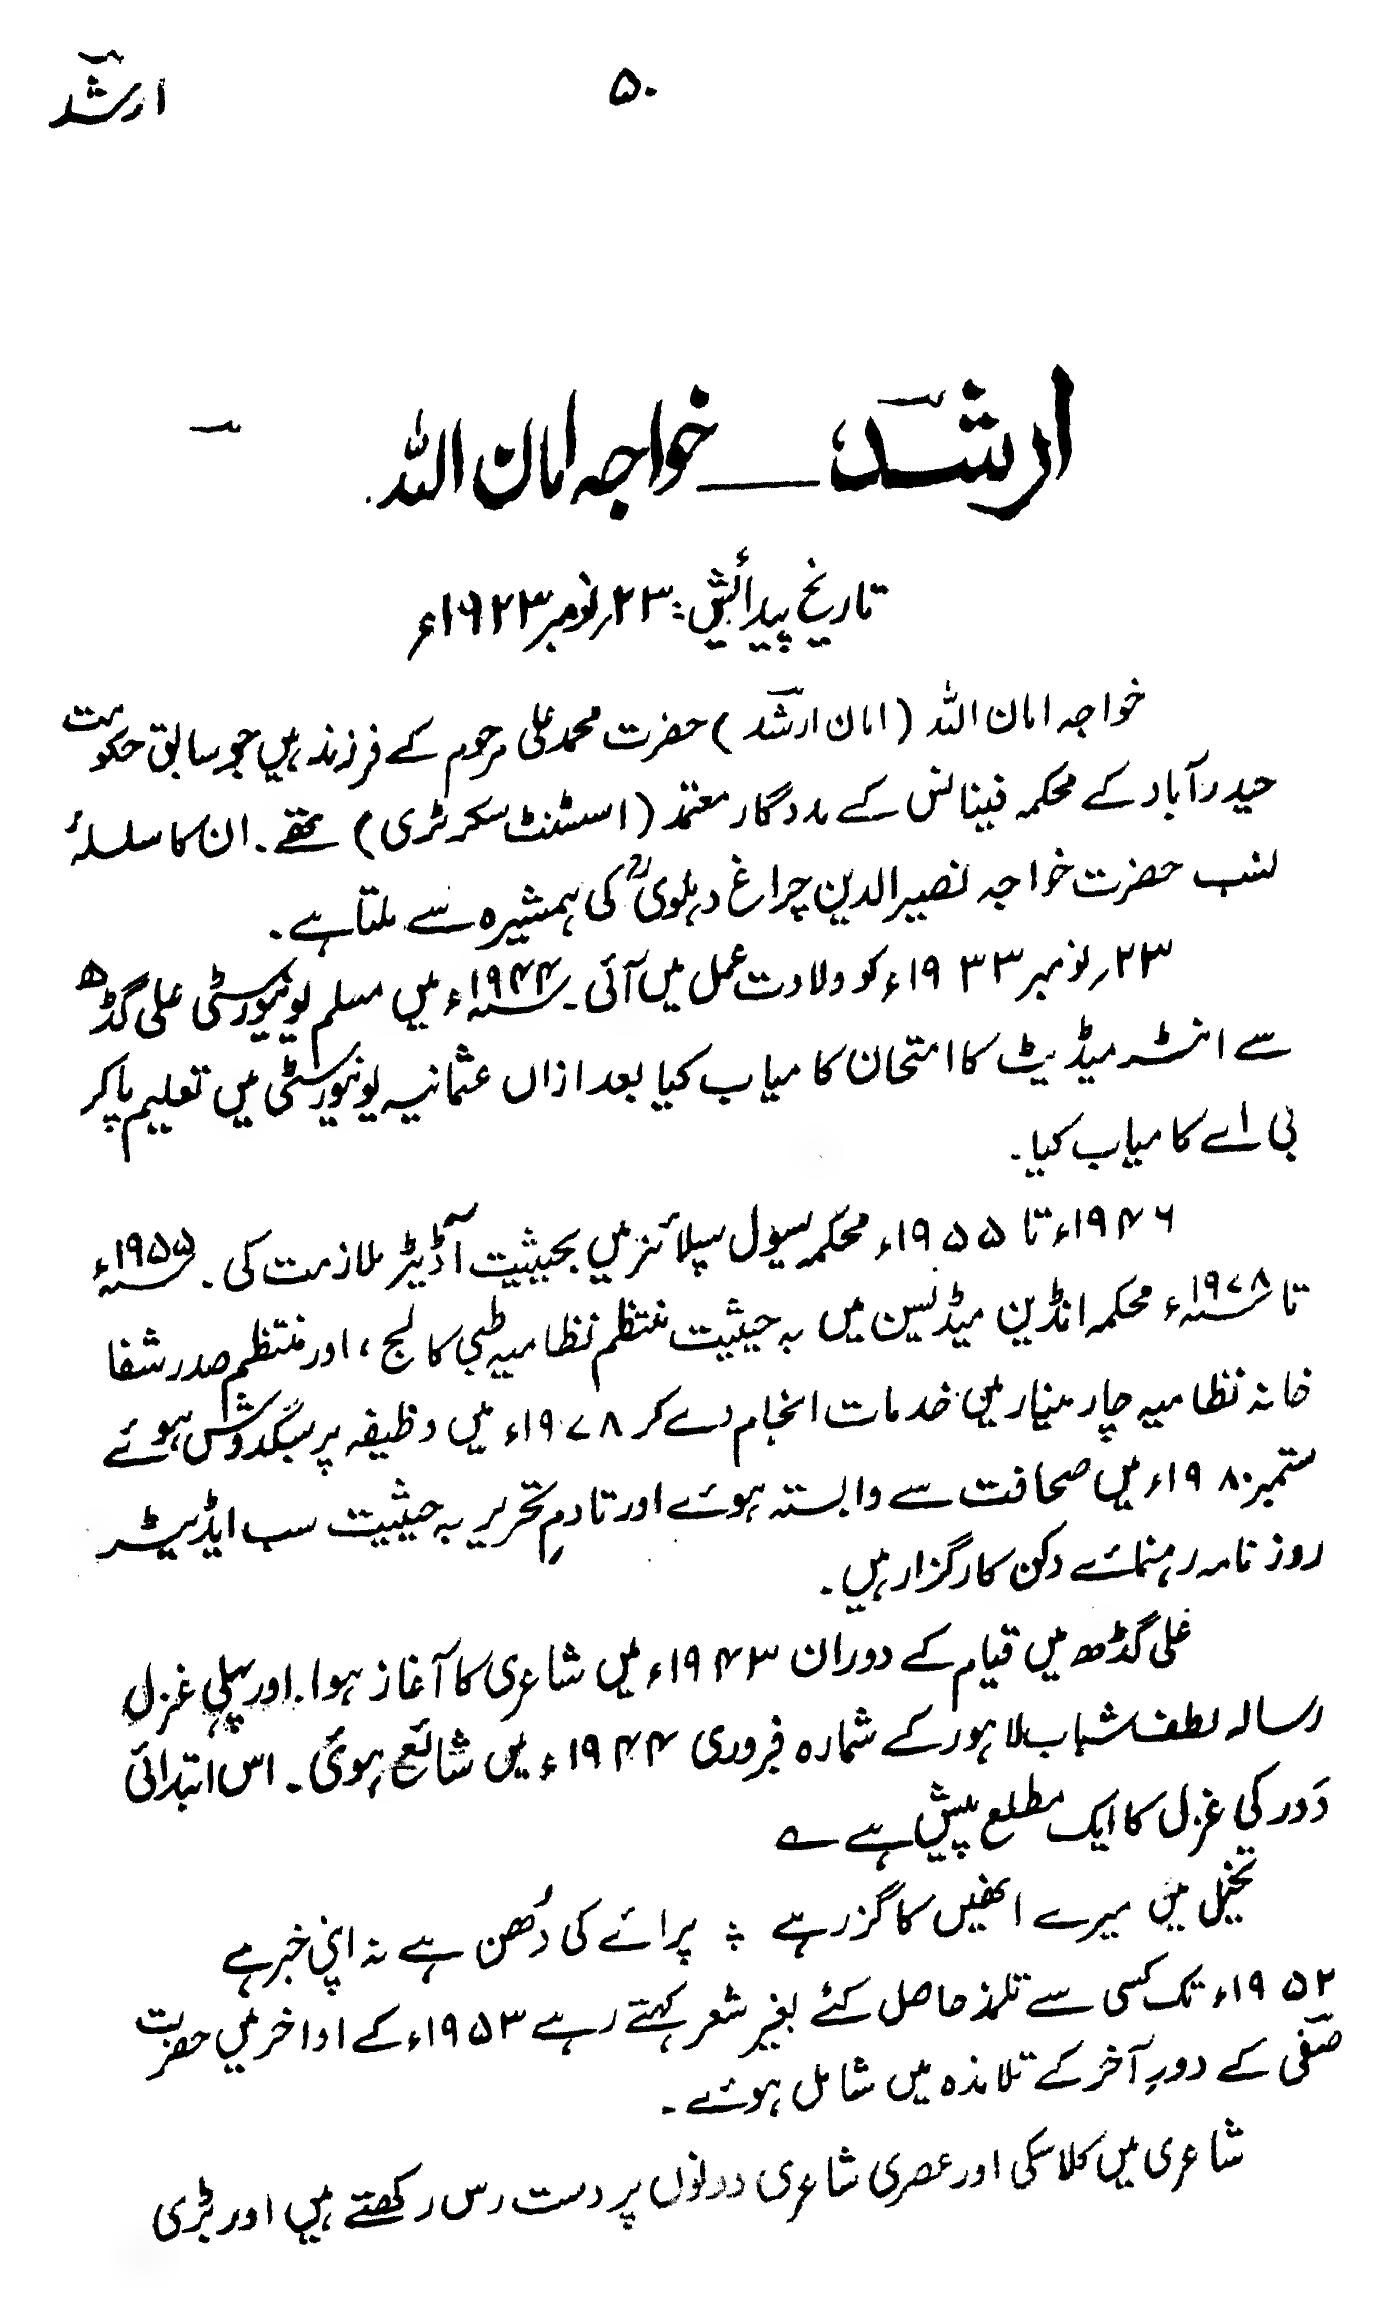 ارشد
۵۰
ارشد ـــ خواجہ امان اللہ
تاریخ پیدائش: ۲۳؍ نومبر ۱۹۲۳ء
خواجہ امان اللہ (امان ارشد) حضرت محمد علی مرحوم کے فرزند ہیں جو سابق حکومت
حیدرآباد کے محکمہ فینانس کے مددگار معتمد (اسسٹنٹ سکرٹری) تھے۔ ان کا سلسلۂ
نسب حضرت خواجہ نصیر الدین چراغ دہلویؒ کی ہمشیرہ سے ملتا ہے۔
۲۳؍ نومبر ۱۹۳۳ء کو ولادت عمل میں آئی۔ ۱۹۴۴ء میں مسلم یونیورسٹی علی گڈھ
سے انٹرمیڈیٹ کا امتحان کامیاب کیا بعد ازاں عثمانیہ یونیورسٹی میں تعلیم پاکر
بی اے کامیاب کیا۔
۱۹۴۶ء تا ۱۹۵۵ء محکمہ سیول سپلائز میں بحیثیت آڈیٹر ملازمت کی۔ ۱۹۵۵ء
تا ۱۹۷۸ء محکمہ انڈین میڈیسن میں بہ حیثیت منتظم نظامیہ طبی کالج، اور منتظم صدر شفا
خانہ نظامیہ چارمینار میں خدمات انجام دے کر ۱۹۷۸ء میں وظیفہ پر سبکدوش ہوئے
ستمبر ۱۹۸۰ء میں صحافت سے وابستہ ہوئے اور تادمِ تحریر بہ حیثیت سب ایڈیٹر
روز نامہ رہنمائے دکن کارگزار ہیں۔
علی گڈھ میں قیام کے دوران ۱۹۴۳ء میں شاعری کا آغاز ہوا۔ اور پہلی غزل
رسالہ لطف شباب لاہور کے شمارہ فروری ۱۹۴۴ء میں شائع ہوئی۔ اس ابتدائی
دَور کی غزل کا ایک مطلع پیش ہے ؎
تخیل میں میرے انھیں کا گزر ہے ؞ پرائے کی دُھن ہے نہ اپنی خبر ہے
۱۹۵۲ء تک کسی سے تلمذ حاصل کئے بغیر شعر کہتے رہے ۱۹۵۳ء کے اواخر میں حضرت
صفی کے دورِ آخر کے تلامذہ میں شامل ہوئے۔
شاعری میں کلاسکی اور عصری شاعری دونوں پر دست رس رکھتے ہیں اور بڑی